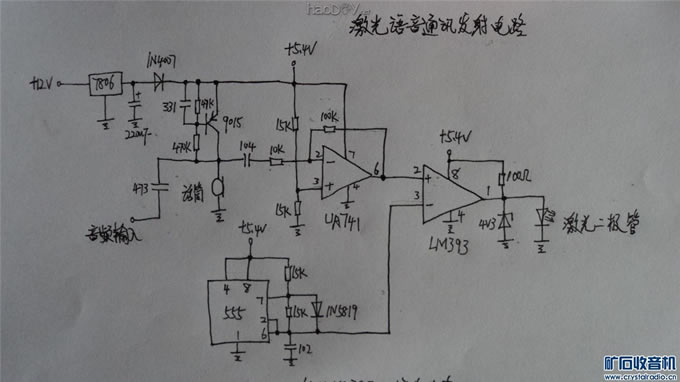 haoDXtV.com
激光语音通讯发射电路
+5.4V
+12V
7806
1N4007
+
220uF
331
47K
9015
470K
473
音频输入
104
10K
话筒
15K
15K
100K
2
-
3
+
7
4
6
UA741
+5.4V
2
+
3
-
8
4
1
LM393
100Ω
4V3
激光二极管
+5.4V
4
8
555
7
2
6
1
15K
15K
1N5819
102
矿石收音机
www.crystalradio.cn